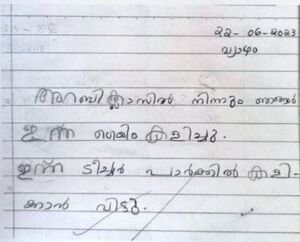 22-06-2023
വ്യാഴം
അറബിക്ലാസിൽ നിന്നും ഞങ്ങൾ
ഇന്ന് ഗെയിം കളിച്ചു.
ഇന്ന് ടീച്ചർ പാർക്കിൽ കളി-
ക്കാൻ വിട്ടു.